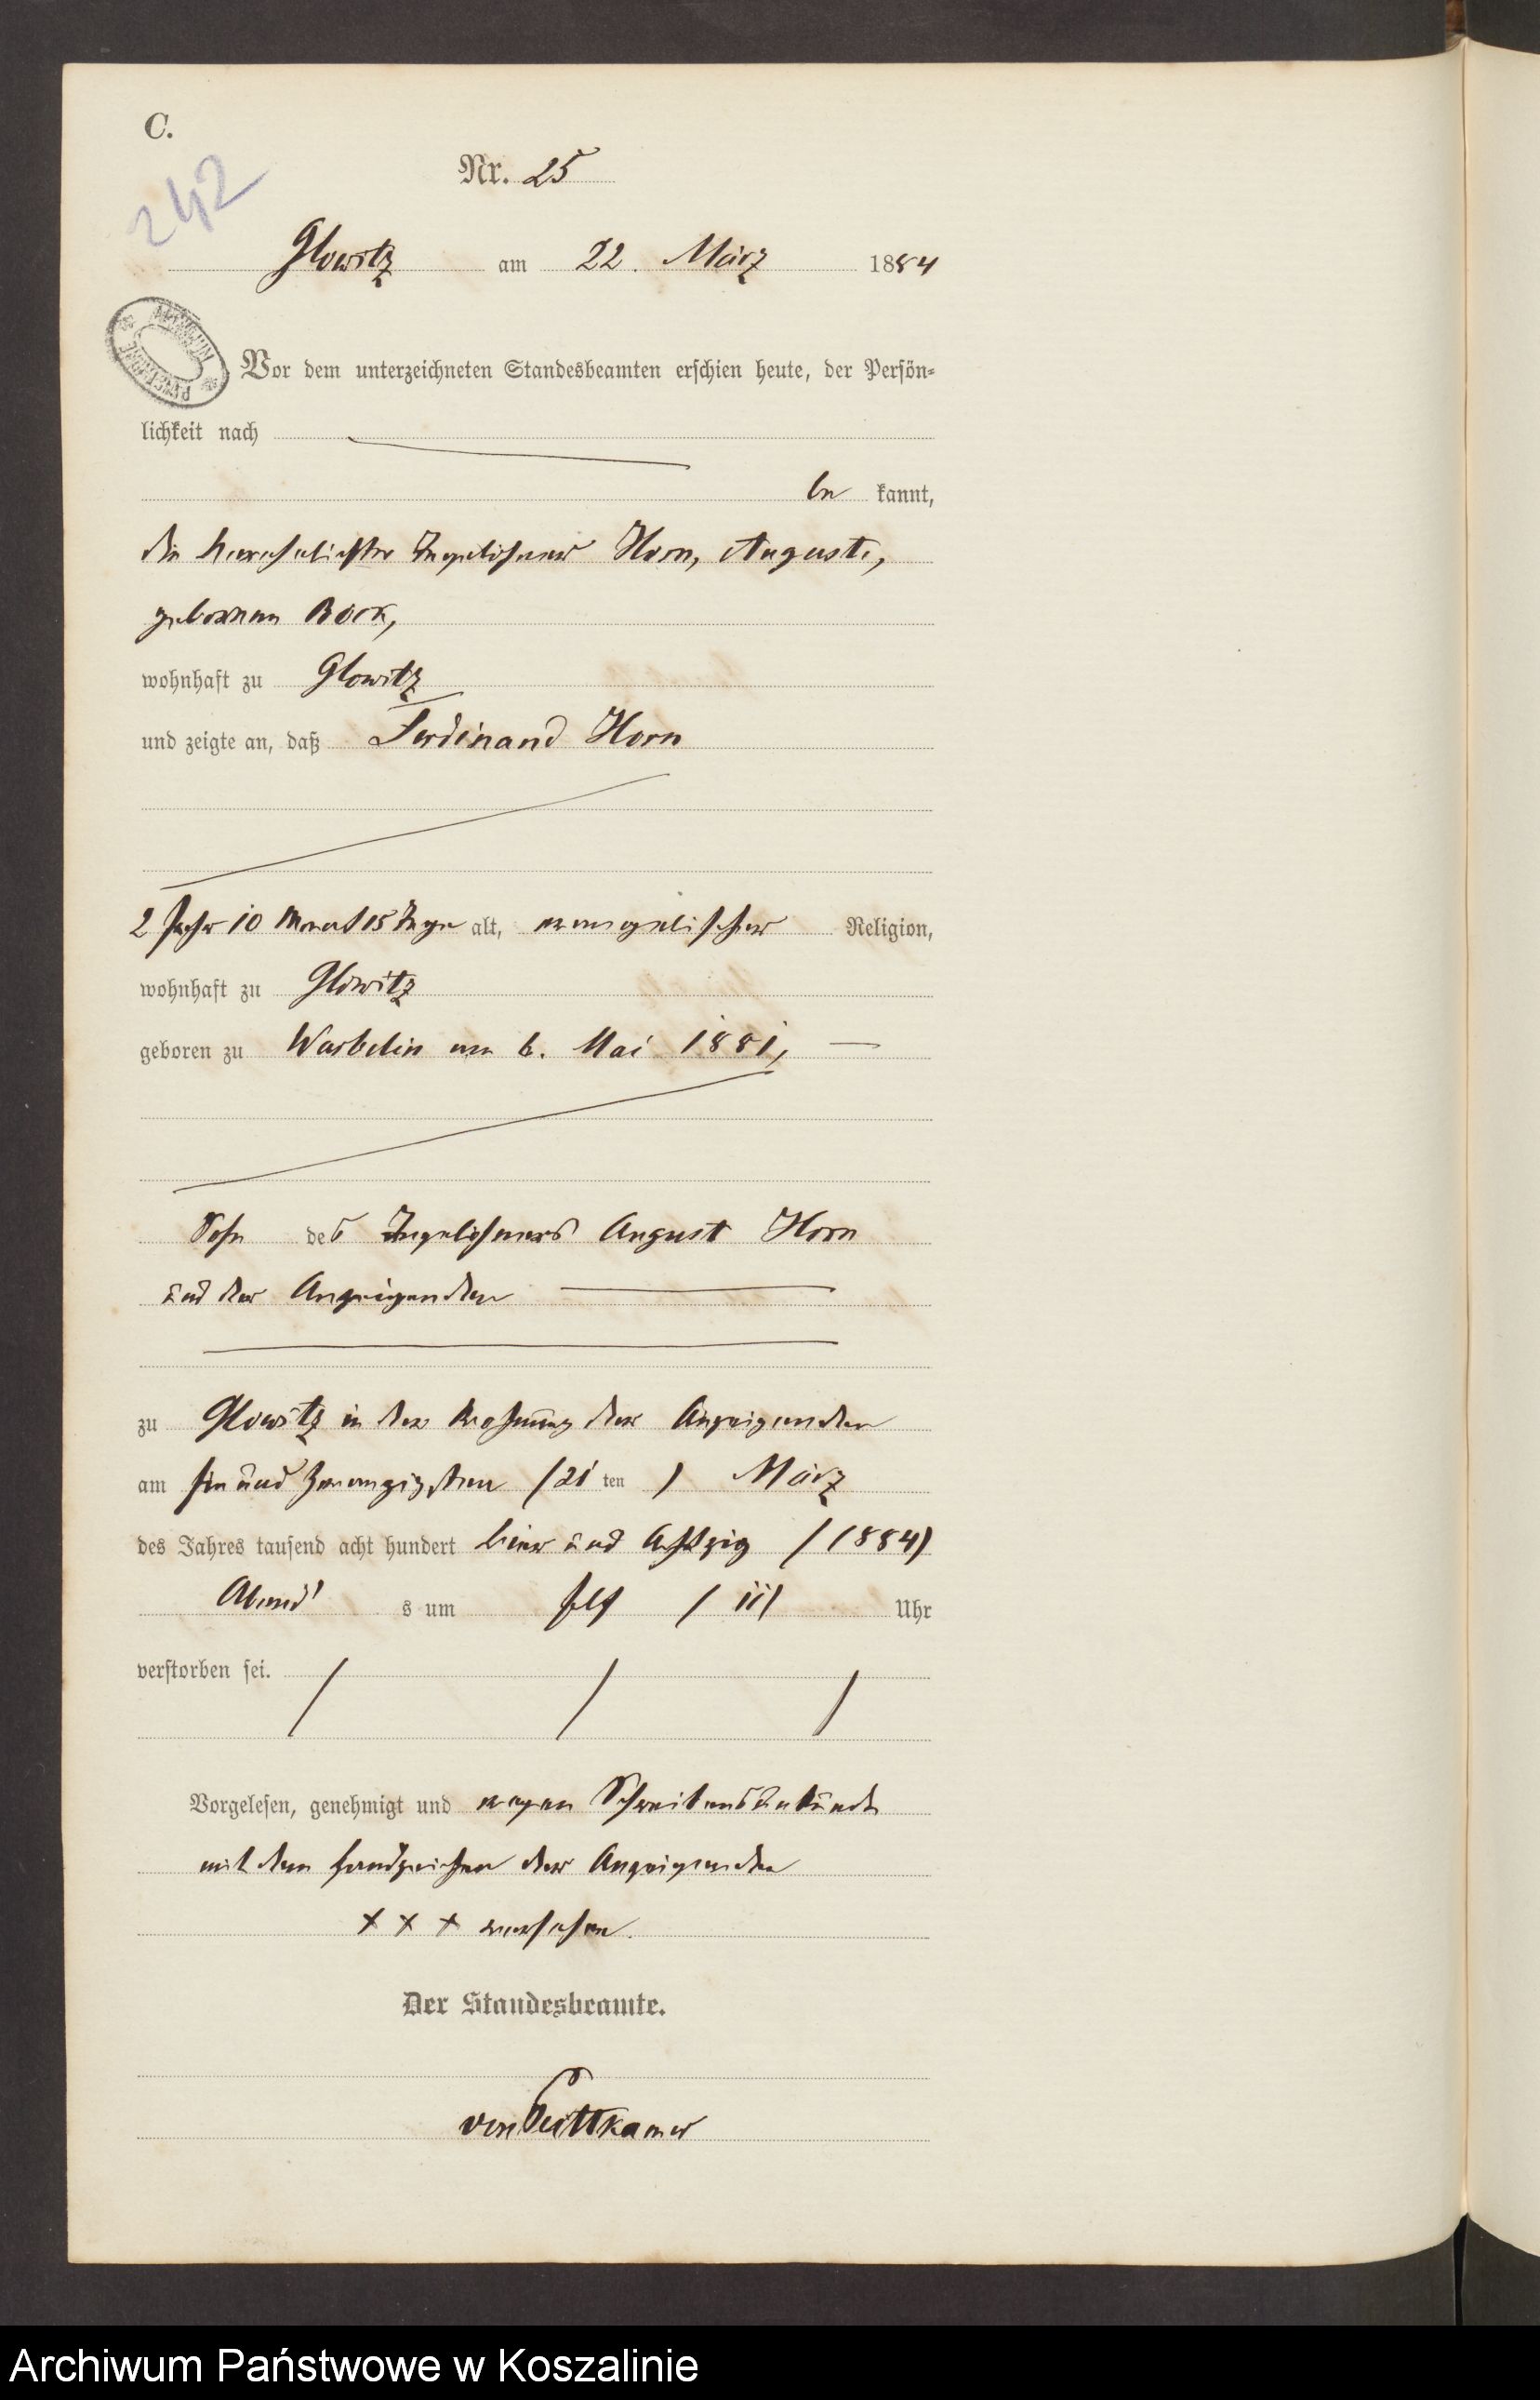 C.
242
Nr. 25
Glowitz am 22. März 1884
ARCHIWUM PAŃSTWOWE
Vor dem unterzeichneten Standesbeamten erschien heute, der Persön-
lichkeit nach
be kannt,
die verehelichte Tagelöhner Horn, Auguste,
geborenen Bock,
wohnhaft zu Glowitz
und zeigte an, daß Ferdinand Horn
2 Jahr 10 Monat 15 Tage alt, evangelischer Religion,
wohnhaft zu Glowitz
geboren zu Warbelin am 6. Mai 1881,
Sohn des Tagelöhners August Horn
und der Anzeigenden
zu Glowitz in der Wohnung der Anzeigenden
am ein und zwanzigsten (21 ten) März
des Jahres tausend acht hundert vier und achtzig (1884)
Abend s um elf (11) Uhr
verstorben sei.
Vorgelesen, genehmigt und wegen Schreibensunkunde
mit dem Handzeichen der Anzeigenden
+ + + versehen.
Der Standesbeamte.
von Puttkamer
Archiwum Państwowe w Koszalinie